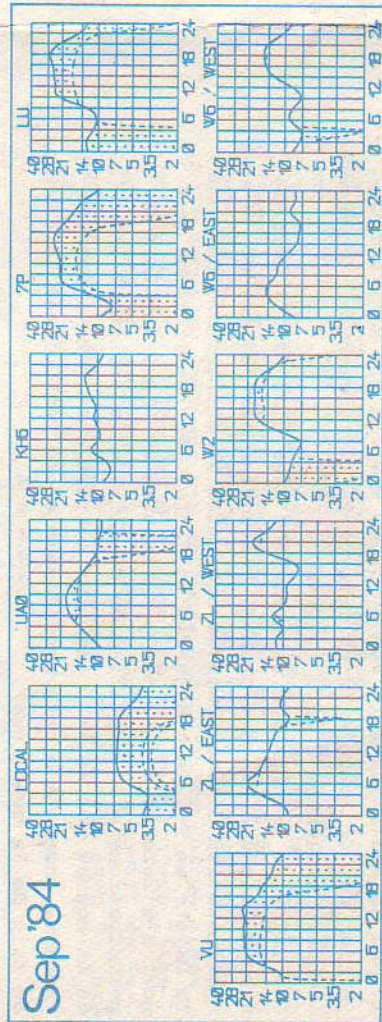 Sep'84
LOCAL
40
28
21
14
10
7
5
3.5
2
0 6 12 18 24
UA0
40
28
21
14
10
7
5
3.5
2
0 6 12 18 24
KH6
40
28
21
14
10
7
5
3.5
2
0 6 12 18 24
7P
40
28
21
14
10
7
5
3.5
2
0 6 12 18 24
LU
40
28
21
14
10
7
5
3.5
2
0 6 12 18 24
VU
40
28
21
14
10
7
5
3.5
2
0 6 12 18 24
ZL / EAST
40
28
21
14
10
7
5
3.5
2
0 6 12 18 24
ZL / WEST
40
28
21
14
10
7
5
3.5
2
0 6 12 18 24
W2
40
28
21
14
10
7
5
3.5
2
0 6 12 18 24
W6 / EAST
40
28
21
14
10
7
5
3.5
2
0 6 12 18 24
W6 / WEST
40
28
21
14
10
7
5
3.5
2
0 6 12 18 24